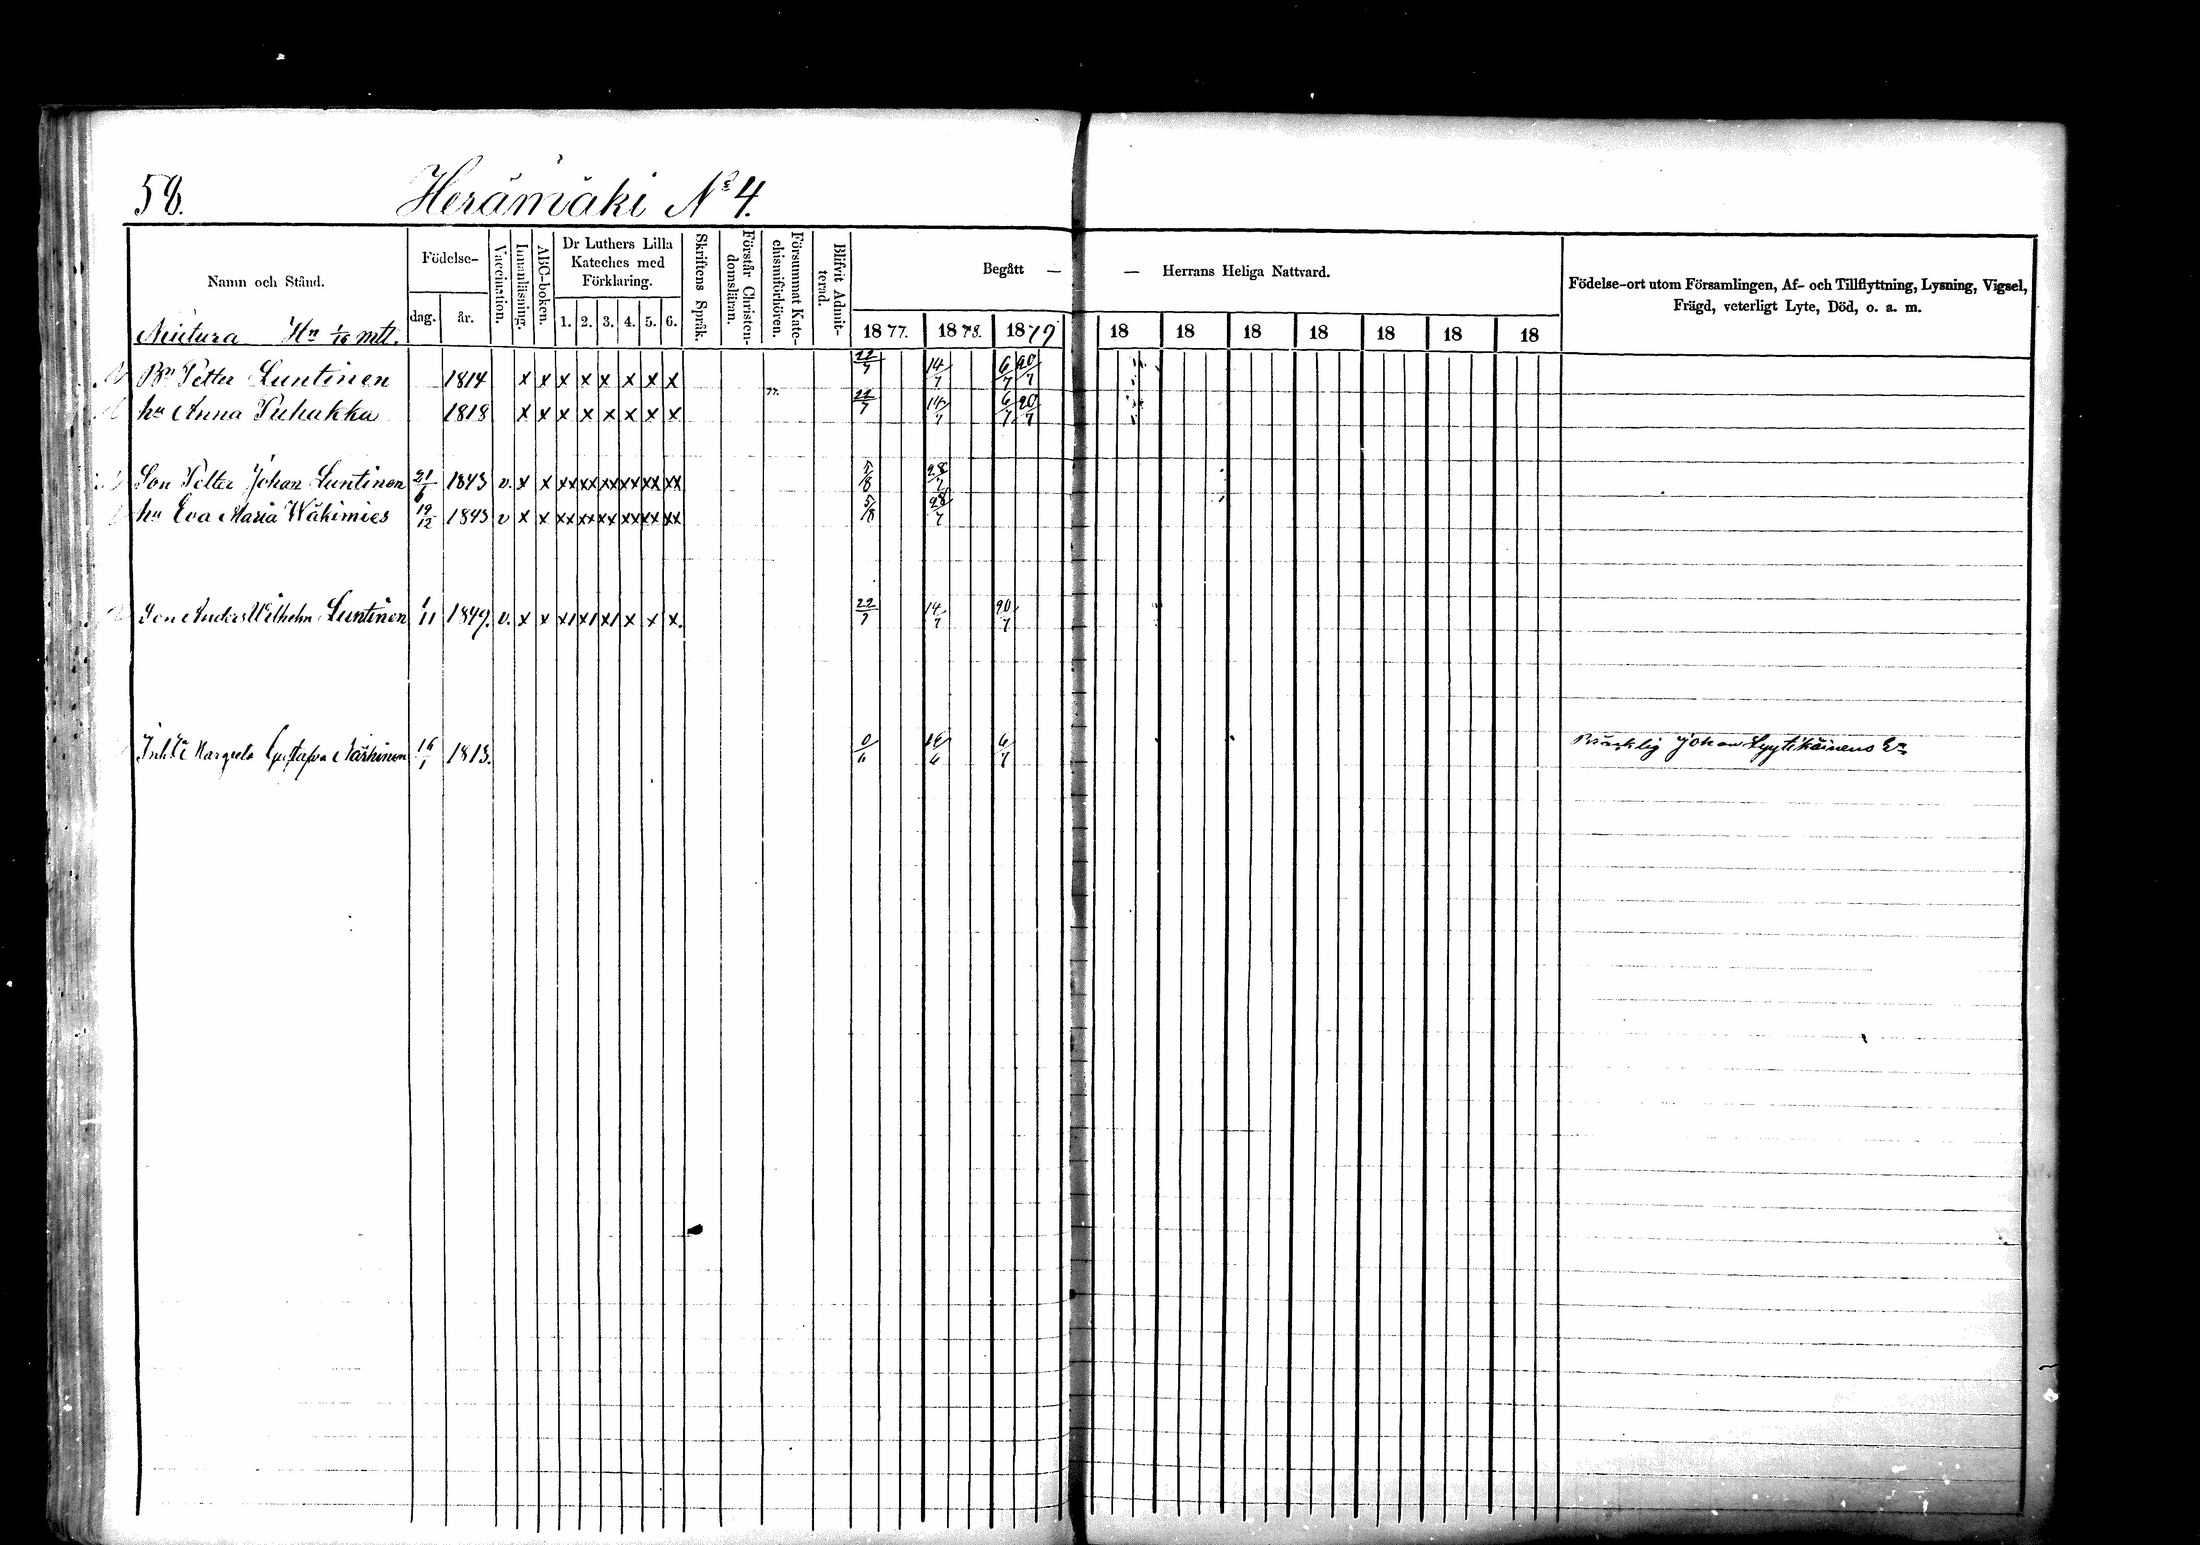 58.
Herämäki No 4.
Namn och Stånd.
Födelse-
dag.
år.
Vaccination.
Innanläsning.
ABC-boken.
Dr Luthers Lilla Kateches med Förklaring.
1. 2. 3. 4. 5. 6.
Skriftens Språk.
Förstår Christendomsläran.
Försummat Katechismiförhören.
Blifvit Admitterad.
Begått — — Herrans Heliga Nattvard.
1877. 1878. 1879 18 18 18 18 18 18 18
Födelse-ort utom Församlingen, Af- och Tillflyttning, Lysning, Vigsel,
Frägd, veterligt Lyte, Död, o. a. m.
Hn 1/16 mtl.
Bn Petter Luntinen 1814 x x x x x x x x 22/7 14/7 6/7 20/7
hu Anna Puhakka 1818 x x x x x x x x 22/7 14/7 6/7 20/7
Son Petter Johan Luntinen 21/6 1843 v. x x xx xx xx xx xx xx 5/8 28/7
hu Eva Maria Wäkimies 19/12 1843 v x x xx xx xx xx xx xx 5/8 28/7
Son Anders Wilhelm Luntinen 1/11 1849. v. x x x/ x/ x/ x x x. 22/7 14/7 20/7
Gustafva 16/1 1813. 6/7
Johan Lyytikäinens